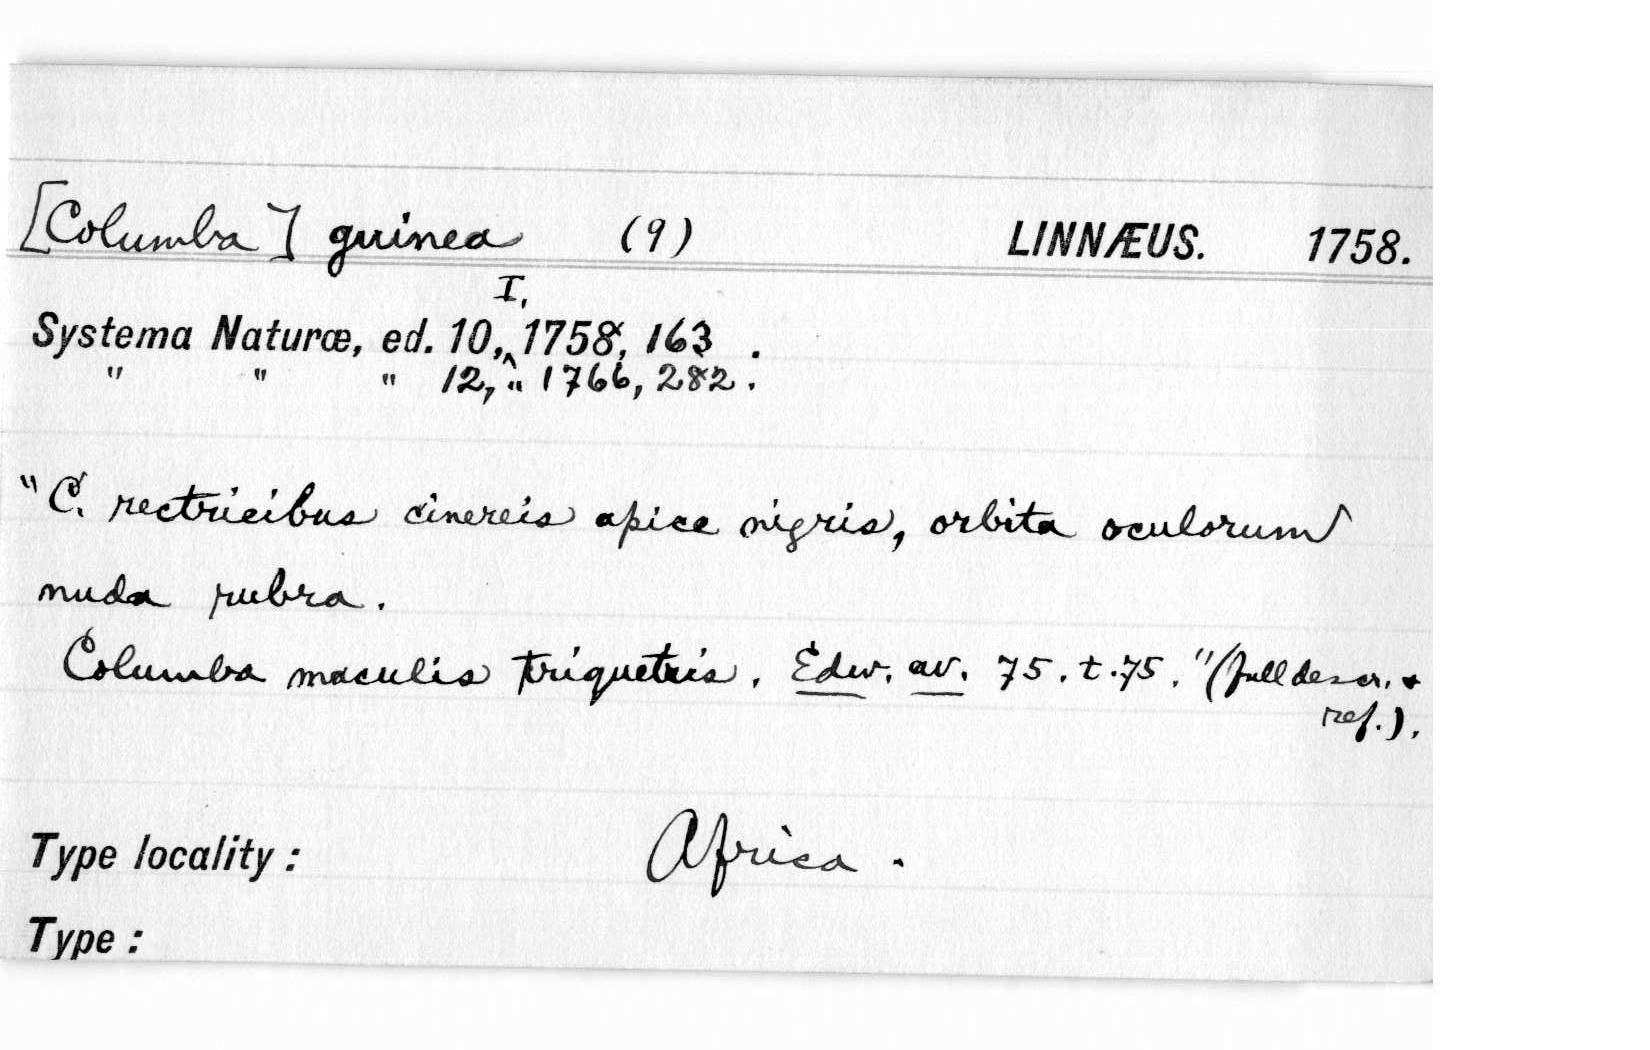 [Columba] guinea (9) LINNÆUS. 1758.
I,
Systema Naturæ, ed. 10, ^ 1758, 163 .
" " " 12, " 1766, 282.
"C. rectricibus cinereis apice nigris, orbita oculorum
nuda rubra.
Columba maculis triquetris. Edw. av. 75. t. 75." (full descr. &
ref.).
Type locality: Africa.
Type: